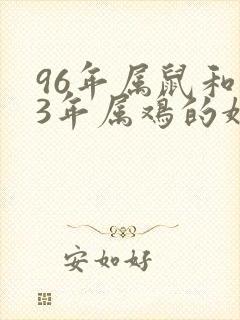 96年属鼠和
3年属鸡的
安如好